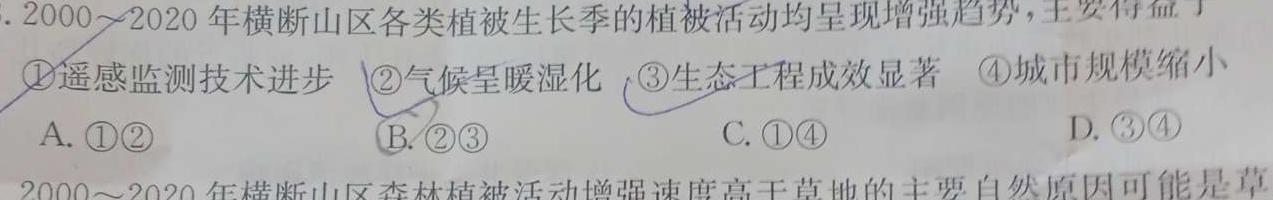 . 2000～2020 年横断山区各类植被生长季的植被活动均呈现增强趋势,主要得益于
①遥感监测技术进步 ②气候呈暖湿化 ③生态工程成效显著 ④城市规模缩小
A. ①② B. ②③ C. ①④ D. ③④
2000～2020 年横断山区森林植被活动增强速度高于草地的主要自然原因可能是草